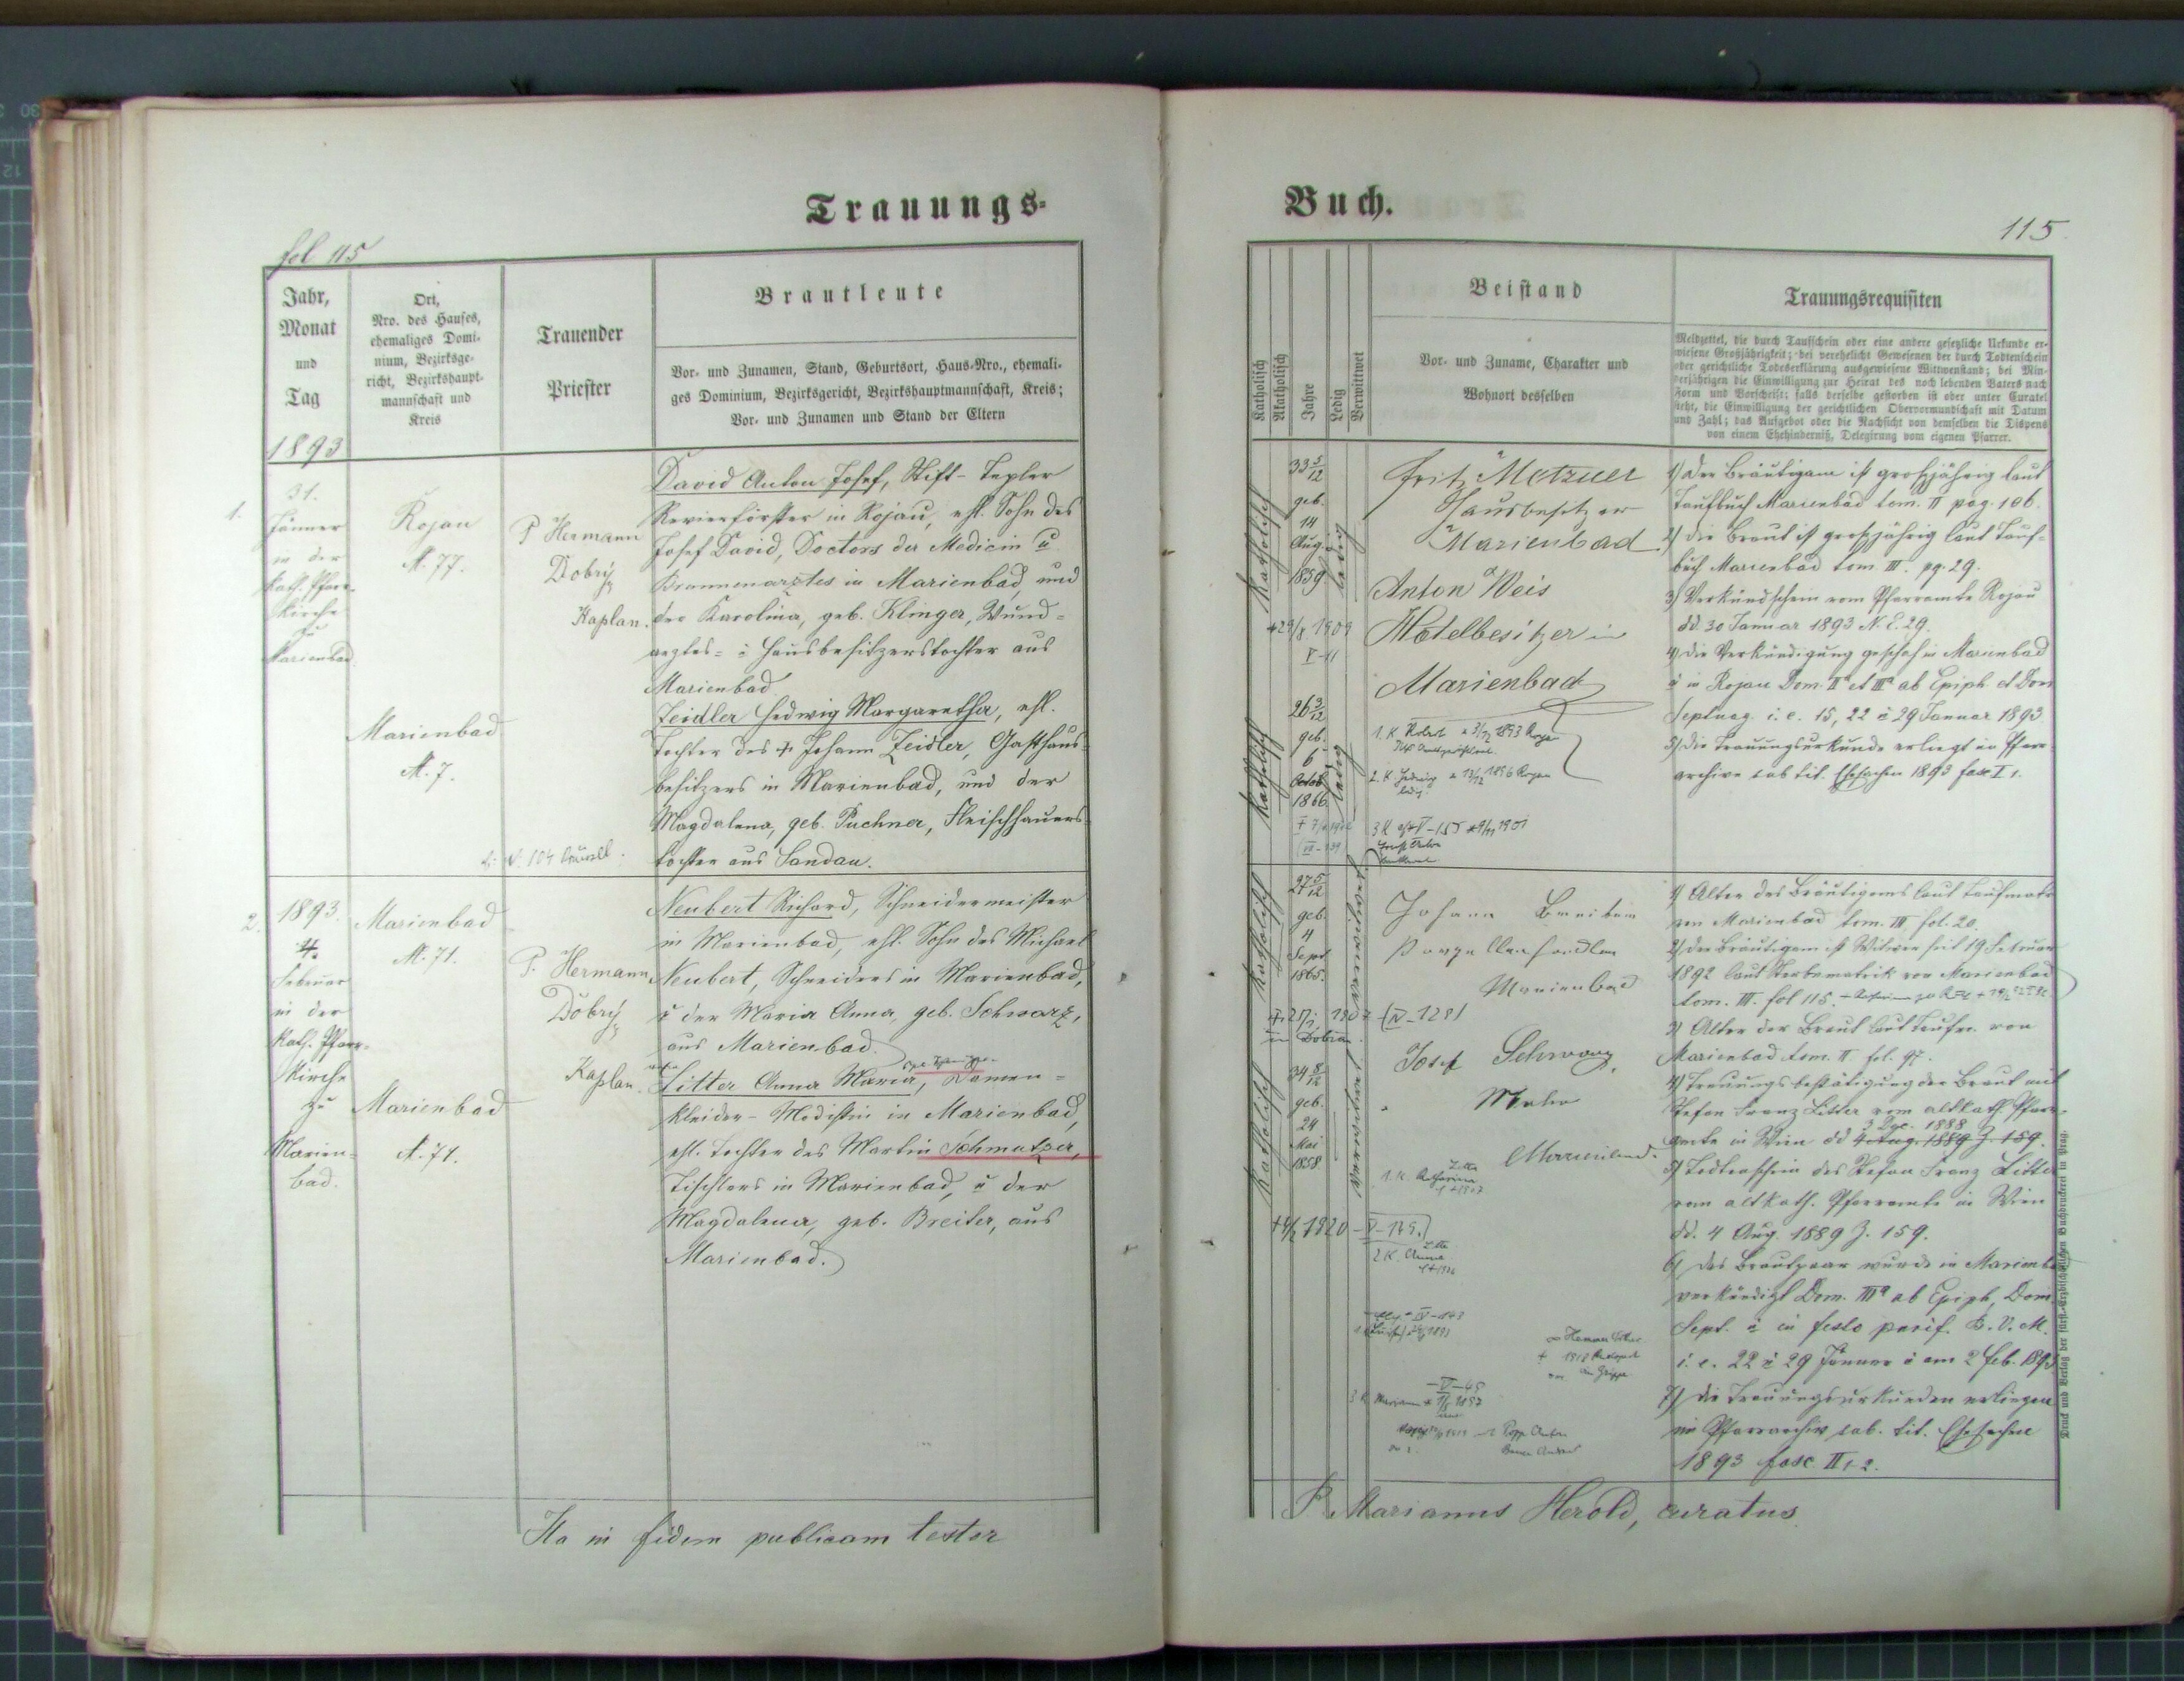 Trauungs-
fol 115
Jahr,
Monat
und
Tag
1893
Ort,
Nro. des Hauses,
ehemaliges Domi-
nium, Bezirksge-
richt, Bezirkshaupt-
mannschaft und
Kreis
Trauender
Priester
Brautleute
Vor- und Zunamen, Stand, Geburtsort, Haus-Nro., ehemali-
ges Dominium, Bezirksgericht, Bezirkshauptmannschaft, Kreis;
Vor- und Zunamen und Stand der Eltern
1.
31.
Jänner
in der
kath. Pfarr-
kirche
zu
Marienbad
Rojau
N. 77.
Marienbad
N. 7.
P Hermann
Dobrý
Kaplan.
David Anton Josef, Stift-Tepler
Revierförster in Rojau, ehl. Sohn des
Josef David, Doctors der Medicin u
Brunnenarztes in Marienbad, und
der Karolina, geb. Klinger, Wund-
arztes- u Hausbesitzerstochter aus
Marienbad
Zeidler Hedwig Margaretha, ehl.
Tochter des † Johann Zeidler, Gasthaus-
besitzers in Marienbad, und der
Magdalena, geb. Puchner, Fleischhauers-
tochter aus Sandau.
N. 104
2.
1893.
4.
Februar
in der
kath. Pfarr-
kirche
zu
Marien-
bad.
Marienbad
N. 71.
Marienbad
N. 71.
P. Hermann
Dobrý
Kaplan.
Neubert Richard, Schneidermeister
in Marienbad, ehl. Sohn des Michael
Neubert, Schneiders in Marienbad,
u der Maria Anna, geb. Schwarz,
aus Marienbad.
Litter Anna Maria, Damen-
kleider-Modistin in Marienbad,
ehl. Tochter des Martin Schmutzer,
Tischlers in Marienbad, u der
Magdalena, geb. Breiter, aus
Marienbad.
Ita in fidem publicam testor
Buch.
115
Katholisch
Akatholisch
Jahre
Ledig
Verwittwet
Beistand
Vor- und Zuname, Charakter und
Wohnort desselben
Trauungsrequisiten
Meldzettel, die durch Taufschein oder eine andere gesetzliche Urkunde er-
wiesene Großjährigkeit; bei verehelicht Gewesenen der durch Todtenschein
oder gerichtliche Todeserklärung ausgewiesene Wittwenstand; bei Min-
derjährigen die Einwilligung zur Heirat des noch lebenden Vaters nach
Form und Vorschrift; falls derselbe gestorben ist oder unter Curatel
steht, die Einwilligung der gerichtlichen Obervormundschaft mit Datum
und Zahl; das Aufgebot oder die Nachsicht von demselben die Dispens
von einem Ehehinderniß, Delegirung vom eigenen Pfarrer.
Katholisch
33 5/12
geb.
14
Aug.
1859
ledig
1909
V-11
Fritz Metzner
Hausbesitzer
Marienbad
Anton Weis
Hotelbesitzer in
Marienbad
Katholisch
26 3/12
geb.
6
Octob
1866
ledig
1893
2. K. Hedwig 1896 Rojau
ledig.
1901
1) Der Bräutigam ist großjährig laut
Taufbuch Marienbad tom. II pag. 106.
2) die Braut ist großjährig laut Tauf-
buch Marienbad tom. III. pg. 29.
3) Verkündschein vom Pfarramte Rojau
dd. 30 Januar 1893 N. E. 29.
4) die Verkündigung geschah in Marienbad
u in Rojau Dom. IIa et IIIa ab Epiph et Dom
Septuag. i. e. 15, 22 u 29 Januar 1893
5) die Trauungsurkunde erliegt im Pfarr-
archive sub tit. Ehesachen 1893 fasc I 1.
Katholisch
27 5/12
geb.
4
Sept
1865.
verwitwet
(IV-128)
in Dobřan
Johann Breiter
Porzellanhändler
Marienbad
Josef Schwarz,
Maler
Marienbad.
Katholisch
34 8/12
geb.
24
Mai
1858
verwitwet
1920 - V-175.
1. K. Katharina
2 K. Anna
1) Alter des Bräutigams laut Taufmatr
von Marienbad tom. III fol. 20.
2) der Bräutigam ist Witwer seit 19. Februar
1892 laut Sterbematrik von Marienbad
tom. III. fol 115.
3) Alter der Braut laut Taufm. von
Marienbad tom. II. fol. 97.
4) Trauungsbestätigung der Braut mit
Stefan Franz Litter vom altkath. Pfarr-
3 Dge. 1888
amte in Wien dd 4. Aug. 1889 Z. 159.
5) Todtenschein des Stefan Franz Litter
vom altkath. Pfarramte in Wien
dd. 4 Aug. 1889 Z. 159.
6) das Brautpaar wurde in Marienba
verkündigt Dom. IIIa ab Epiph, Dom.
Sept. u in festo purif. B. V. M.
i. e. 22 u 29 Januar u am 2 Feb. 1893
7) die Trauungsurkunden erliegen
im Pfarrarchiv sub. tit. Ehesachen
1893 fasc. II 1-2.
P. Marianus Herold, curatus
Druck und Verlag der fürst-erzbischöflichen Buchdruckerei in Prag.